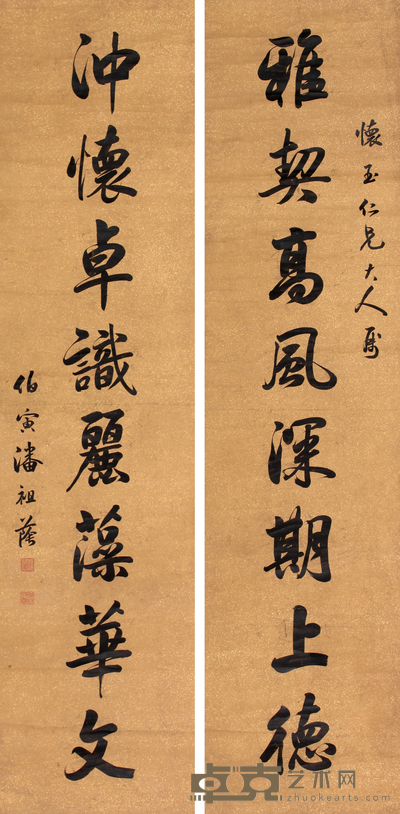 懷玉仁兄大人屬
雅契高風深期上德
沖懷卓識麗藻華文
伯寅潘祖蔭
卓克艺术网
zhuokearts.com